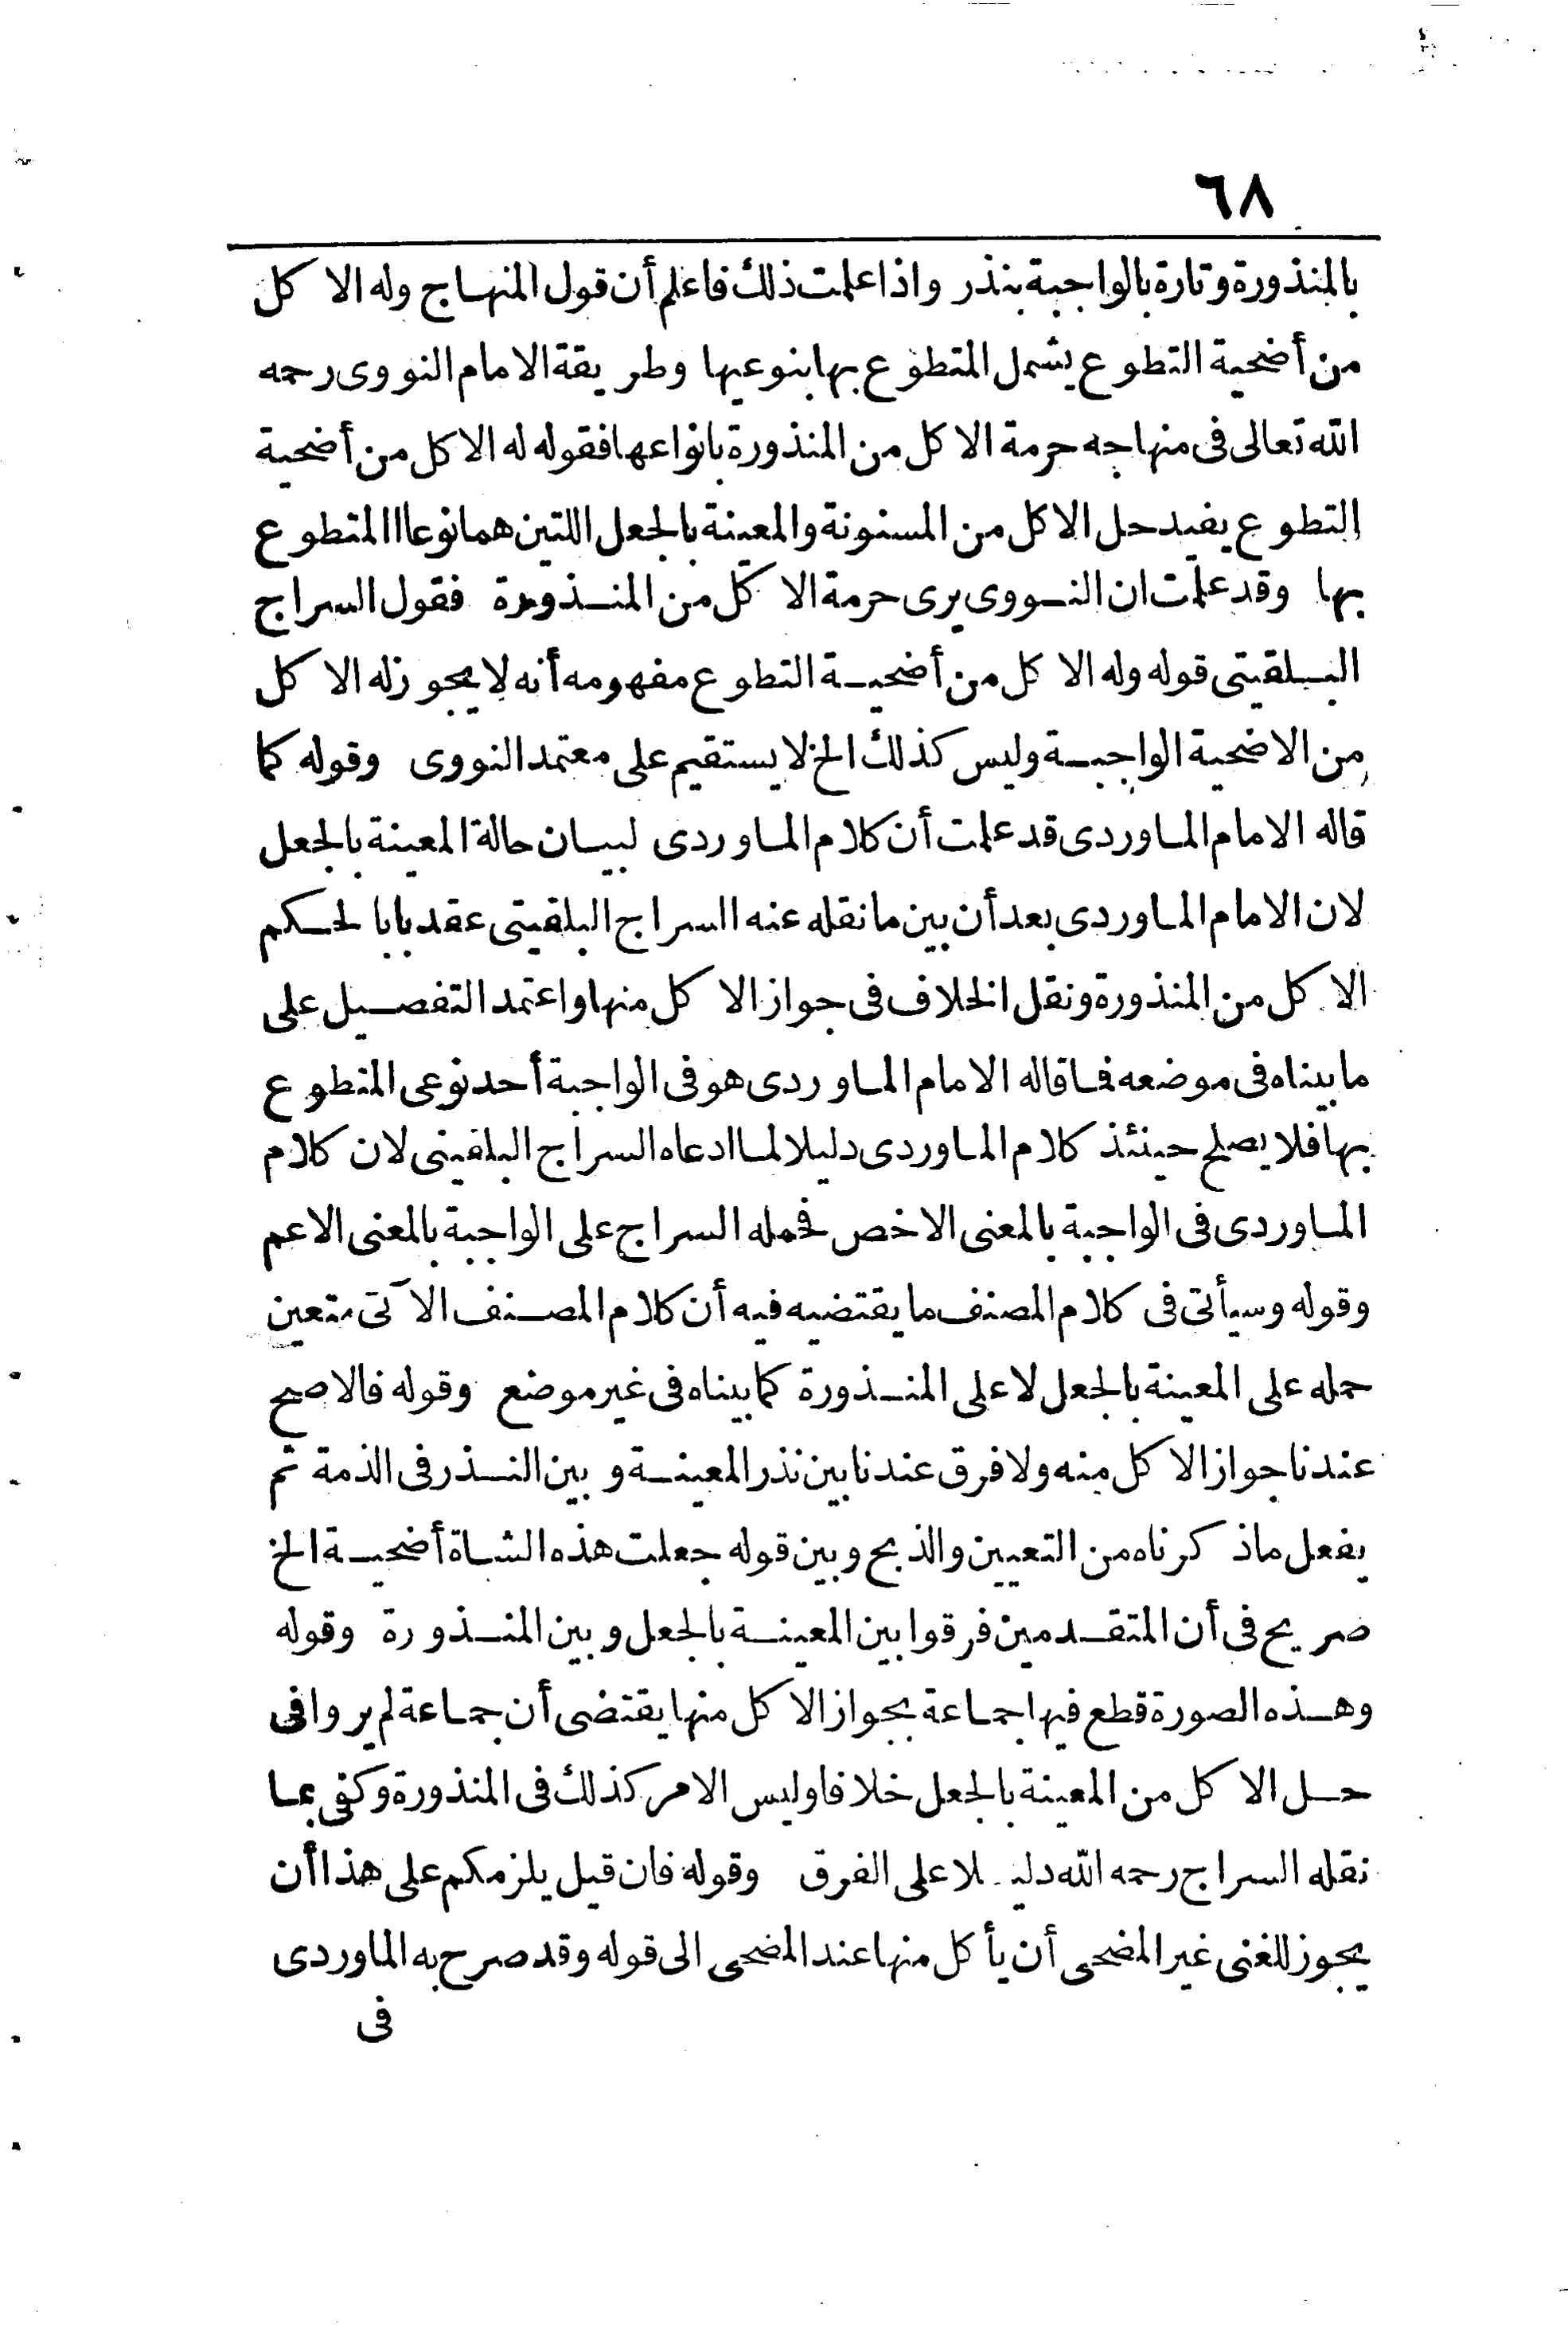 ٦٨
بالمنذورة وتارة بالواجبة بنذر واذا علمت ذلك فاعلم أن قول المنهاج وله الاكل
من أضحية التطوع يشمل المتطوع بها بنوعيها وطريقة الامام النووى رحمه
الله تعالى فى منهاجه حرمة الاكل من المنذورة بانواعها فقوله له الاكل من أضحية
التطوع يفيد حل الاكل من المسنونة والمعينة بالجعل اللتين هما نوعا المتطوع
بها وقد علمت ان النووى يرى حرمة الاكل من المنذورة فقول السراج
البلقينى قوله وله الاكل من أضحية التطوع مفهومه أنه لا يجوز له الاكل
من الاضحية الواجبة وليس كذلك الخ لا يستقيم على معتمد النووى وقوله كما
قاله الامام الماوردى قد علمت أن كلام الماوردى لبيان حالة المعينة بالجعل
لان الامام الماوردى بعد أن بين ما نقله عنه السراج البلقينى عقد بابا لحكم
الاكل من المنذورة ونقل الخلاف فى جواز الاكل منها واعتمد التفصيل على
ما بيناه فى موضعه فما قاله الامام الماوردى هو فى الواجبة أحد نوعى المتطوع
بها فلا يصلح حينئذ كلام الماوردى دليلا لما ادعاه السراج البلقينى لان كلام
الماوردى فى الواجبة بالمعنى الاخص فحمله السراج على الواجبة بالمعنى الاعم
وقوله وسيأتى فى كلام المصنف ما يقتضيه فيه أن كلام المصنف الآتى متعين
حمله على المعينة بالجعل لا على المنذورة كما بيناه فى غير موضع وقوله فالاصح
عندنا جواز الاكل منه ولا فرق عندنا بين نذر المعينة وبين النذر فى الذمة ثم
يفعل ما ذكرناه من التعيين والذبح وبين قوله جعلت هذه الشاة أضحية الخ
صريح فى أن المتقدمين فرقوا بين المعينة بالجعل وبين المنذورة وقوله
وهذه الصورة قطع فيها جماعة بجواز الاكل منها يقتضى أن جماعة لم يروا فى
حل الاكل من المعينة بالجعل خلافا وليس الامر كذلك فى المنذورة وكفى بما
نقله السراج رحمه الله دليلا على الفرق وقوله فان قيل يلزمكم على هذا أن
يجوز للغنى غير المضحى أن يأكل منها عند المضحى الى قوله وقد صرح به الماوردى
فى